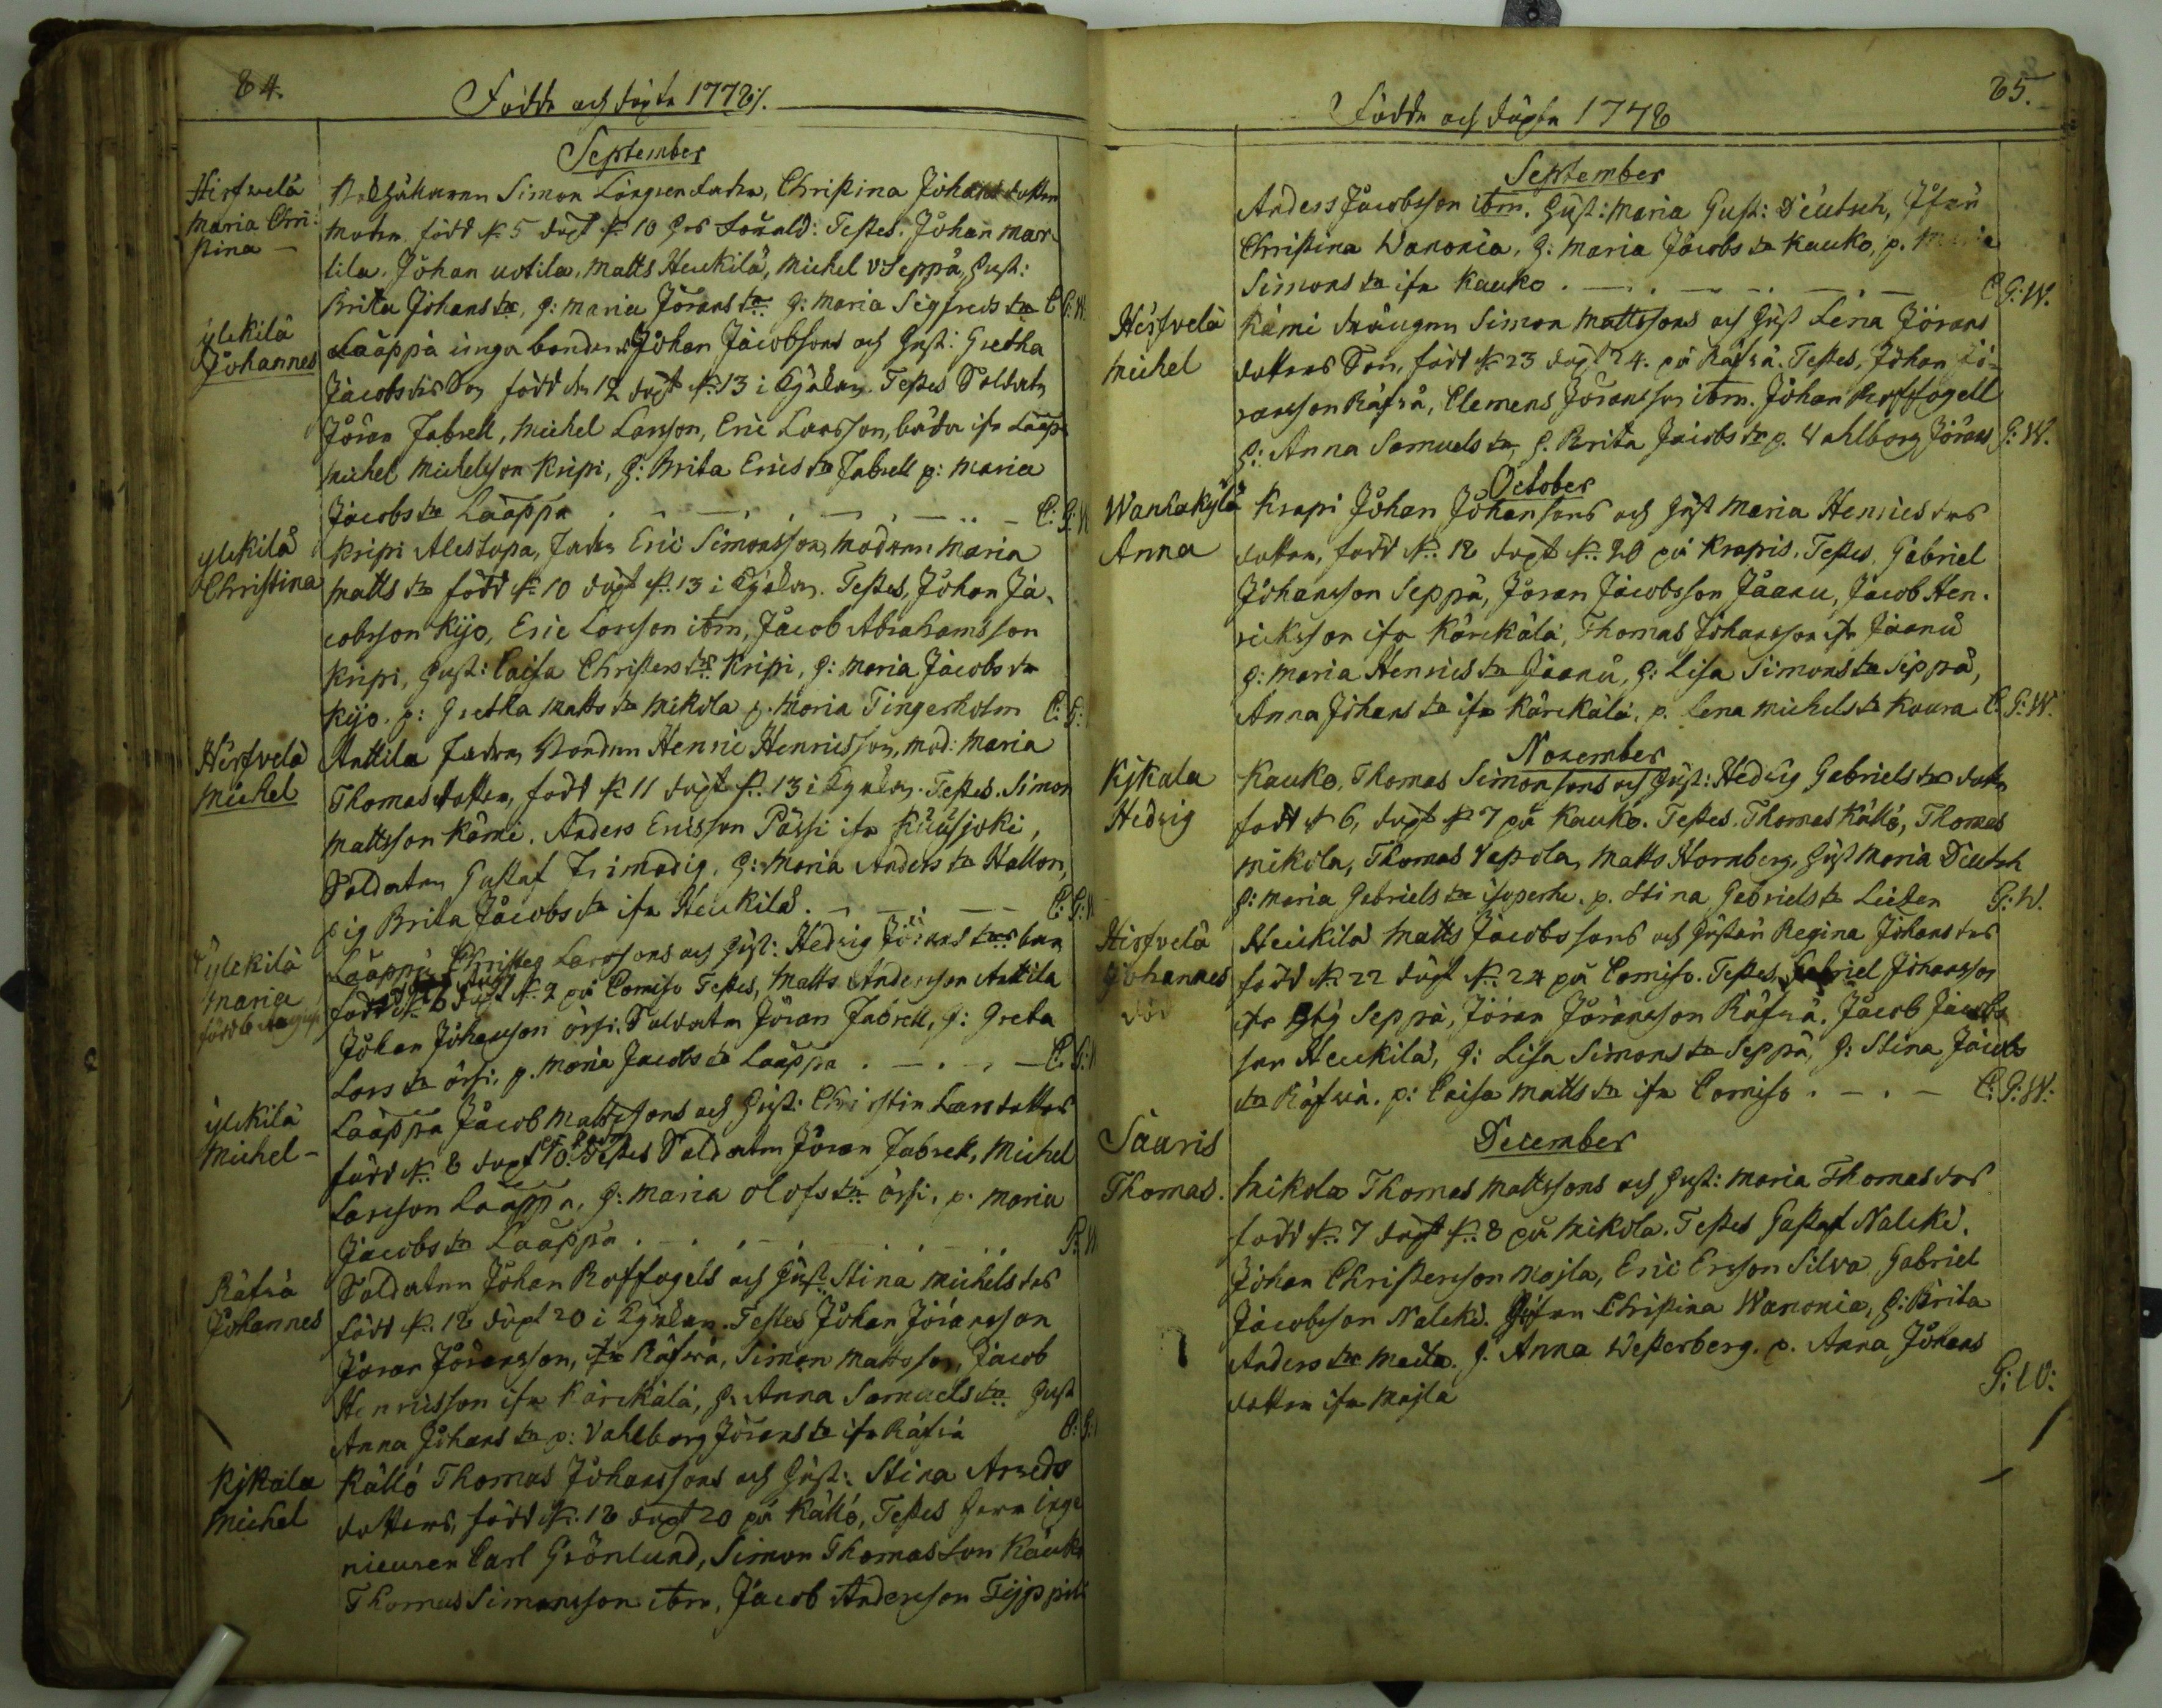 84.
Födde och döpta 1778.
September
Hirfvelä
Maria Chri:
stina
Simon Löngren fadren, Christina Johans dotter
modren född d. 5 döpt d. 10 Testes. Johan Mar
tila. Johan uotila, Matts Heickilä, Michel Seppä, Hust:
Britta Johans dr, H: Maria Jörans dr H: Maria Sigfreds dr C G: W.
ylckilä
Johannes
Lääppä unga bonden Johan Jacobsons och Hust: Gretha
Jacobs drs Son född den 12 döpt d. 13 i Kyrkan. Testes Soldaten
Jöran Jabrell, Michel Larsson, Eric Larsson, båda ifr Lääpp
Michel Michelsson Kripi, H: Brita Erics dr Jabrell p: Maria
Jacobs dr Lääppä C: G: W
ylckilä
Christina
Kripi Alestupa, fadren Eric Simonsson, modren Maria
Matts dr född d. 10 döpt d. 13 i Kyrkan. Testes, Johan Ja-
cobsson Kijo, Eric Larsson ibm, Jacob Abrahamsson
Kripi, Hust: Caisa Christers dr Kripi, H: Maria Jacobs dr
Kijo. p: Gretha Matts dr Mikola p. Maria Tingerholm C: G:
Hirfvelä
Michel
Anttila fadren Bonden Henric Henricsson, mod: Maria
Thomas dotter, född d. 11 döpt d. 13 i Kyrkan. Testes. Simon
Mattsson Kämi. Anders Ericsson Pässi ifr Kuusjoki,
Soldaten Gustaf Frimodig, H: Maria Anders dr Hallon,
pig Brita Jacobs dr ifr Heickilä. C: G: W
ylckilä
Maria
född 6 Augusti
Lääppä Christer Larssons och Hust: Hedvig Jörans drs barn
född d. 6 döpt d. 9 på Comiso Testes, Matts Andersson Anttila
Johan Johansson örsi, Soldaten Jöran Jabrell, H: Greta
Lars dr örsi, p. Maria Jacobs dr Lääppä C: G: W
ylckilä
Michel
Lääppä Jacob Mattssons och Hust: Christin Larsdotters
född d. 8 döpt 10. Testes Soldaten Jöran Jabrell, Michel
Larsson Lääppä, H: Maria Olofs dr örsi, p. Maria
Jacobs dr Lääppä G: W
Räfvä
Johannes
Soldaten Johan Roffogels och Hust Stina Michels drs
född d. 18 döpt 20 i Kyrkan. Testes Johan Jöransson
Jöran Jöransson, ifr Räfvä, Simon Mattsson, Jacob
Henricsson ifr Kärckälä, H: Anna Samuels dr Hust
Anna Johans dr p: Vahlborg Jörans dr ifr Räfvä C: G:
Kÿkala
Michel
Källö Thomas Johanssons och Hust: Stina Arveds
dotters, född d. 18 döpt 20 på Källö, Testes Herr Inge
nieuren Carl Grönlund, Simon Thomasson Kauko
Thomas Simonsson ibm, Jacob Andersson Tÿppi
85.
Födde och döpta 1778
September
Anders Jacobsson ibm. Hust: Maria Gust: Deutsch, Jfrun
Christina Wanonia, H: Maria Jacobs dr Kauko, p. Maria
Simons dr ifr Kauko. C G: W.
Hirfvelä
Michel
Kämi drängen Simon Mattssons och Hust Lena Jörans
dotters Son, född d. 23 döpt 24. på Räfvä. Testes, Johan Jö-
ransson Räfvä, Clemens Jöransson ibm. Johan Roffogell
H: Anna Samuels dr, H. Brita Jacobs dr p. Wahlborg Jörans G: W.
October
Wanhakylä
Anna
Krapi Johan Johanssons och Hust Maria Henrics drs
dotter, född d. 18 döpt d. 20 på Krapis. Testes, Gabriel
Johansson Seppä, Jöran Jacobsson Jaanu, Jacob Hen-
ricksson ifr Kärckälä, Thomas Johansson ifr Jaanu
H: Maria Henrics dr Jaanu, H: Lisa Simons dr Seppä,
Anna Johans dr ifr Kärckälä, p. Lena Michels dr Koura C. G: W.
November
Kÿkala
Hedvig
Kauko, Thomas Simonsons och Hust: Hedvig Gabriels drs dotter
född d 6, döpt d 7 på Kauko. Testes. Thomas Källö, Thomas
Mikola, Thomas Vapola, Matts Hornberg, Hust Maria Deutsch
H: Maria Gabriels dr Isoperhe. p. Stina Gabriels dr Leisten G: W.
Hirfvelä
Johannes
död
Heickilä Matts Jacobssons och Hustrun Regina Johans drs
född d. 22 döpt d. 24 på Comiso. Testes, Gabriel Johansson
ifr Seppä, Jöran Jöransson Räfvä. Jacob Jacobs
son Heickilä, H: Lisa Simons dr Seppä, H: Stina Jacobs
dr Räfvä. p: Caisa Matts dr ifr Comiso C: G: W:
December
Sauris
Thomas.
Mikola Thomas Mattssons och Hust: Maria Thomas drs
född d. 7 döpt d. 8 på Mikola. Testes Gustaf Nalcki.
Johan Christersson Majla, Eric Ersson Silva, Gabriel
Jacobsson Nalcki. Jfrun Christina Wanonia, H: Brita
Anders dr H. Anna Westerberg. p. Anna Johans
dotter ifr Majla G: W: